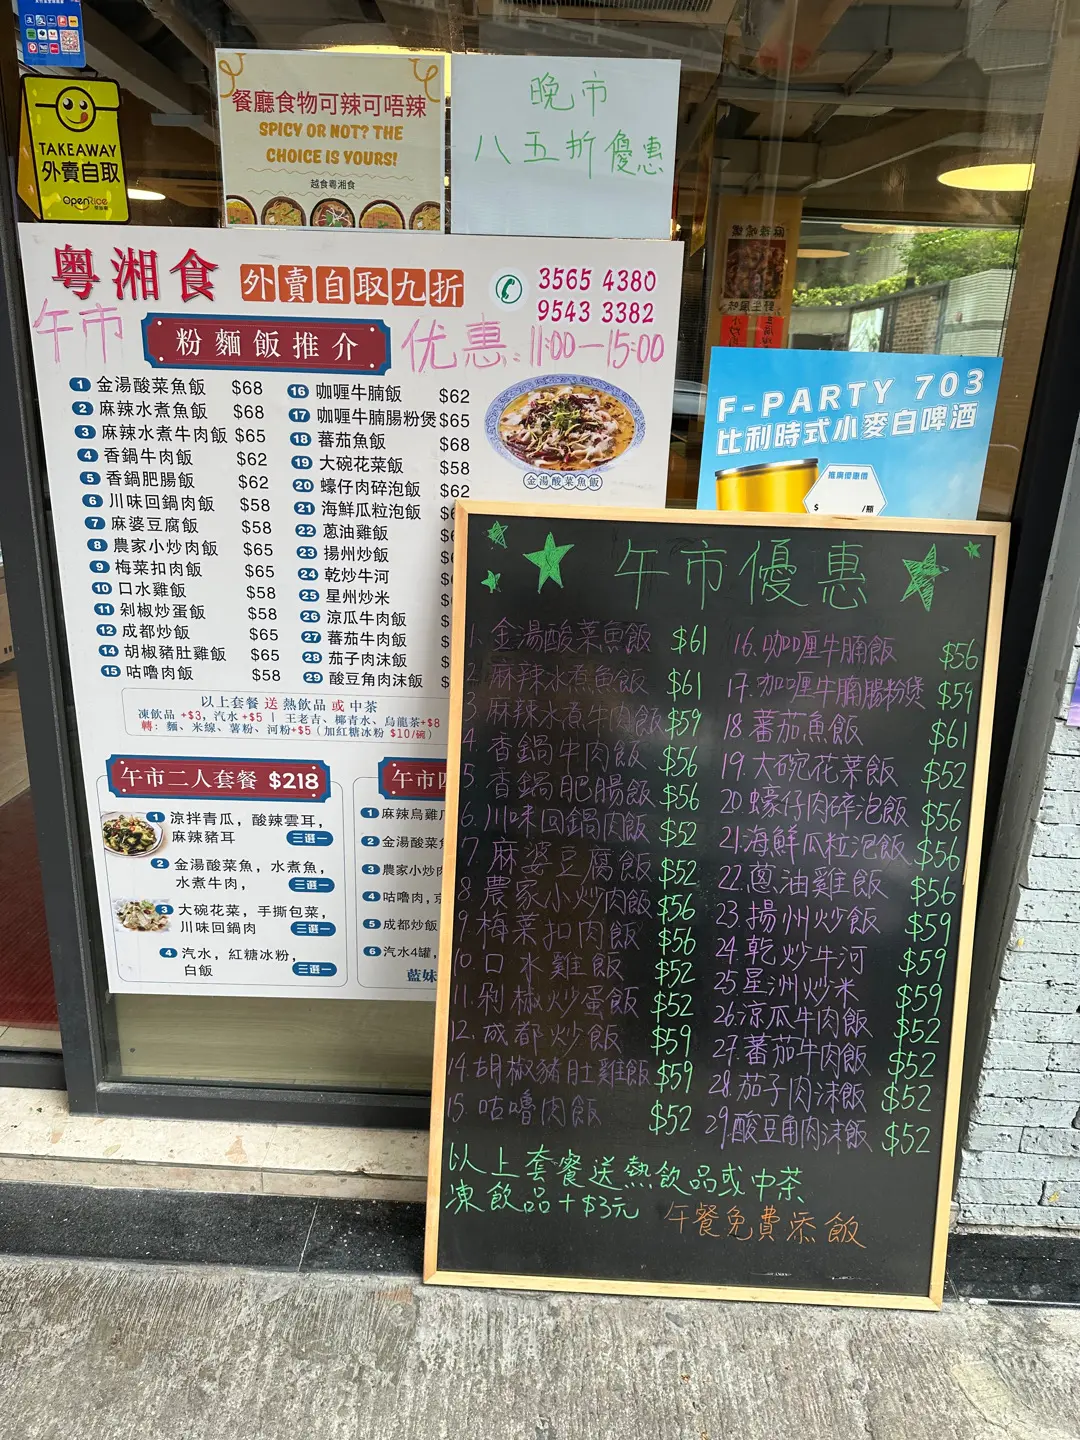 TAKEAWAY
外賣自取
OpenRice
餐廳食物可辣可唔辣
SPICY OR NOT? THE
CHOICE IS YOURS!
越食粵湘食
晚市
八五折優惠
粵湘食
外賣自取九折
3565 4380
9543 3382
午市
粉麵飯推介
优惠: 11:00—15:00
1 金湯酸菜魚飯 $68
2 麻辣水煮魚飯 $68
3 麻辣水煮牛肉飯 $65
4 香鍋牛肉飯 $62
5 香鍋肥腸飯 $62
6 川味回鍋肉飯 $58
7 麻婆豆腐飯 $58
8 農家小炒肉飯 $65
9 梅菜扣肉飯 $65
10 口水雞飯 $58
11 剁椒炒蛋飯 $58
12 成都炒飯 $65
14 胡椒豬肚雞飯 $65
15 咕嚕肉飯 $58
16 咖喱牛腩飯 $62
17 咖喱牛腩腸粉煲 $65
18 蕃茄魚飯 $68
19 大碗花菜飯 $58
20 蠔仔肉碎泡飯 $62
21 海鮮瓜粒泡飯
22 蔥油雞飯
23 揚州炒飯
24 乾炒牛河
25 星州炒米
26 涼瓜牛肉飯
27 蕃茄牛肉飯
28 茄子肉沫飯
29 酸豆角肉沫飯
金湯酸菜魚飯
以上套餐 送 熱飲品 或 中茶
凍飲品 +$3, 汽水 +$5 | 王老吉、椰青水、烏龍茶+$8
轉: 麵、米線、薯粉、河粉+$5 (加紅糖冰粉 $10/碗)
午市二人套餐 $218
1 涼拌青瓜, 酸辣雲耳,
麻辣豬耳 三選一
2 金湯酸菜魚, 水煮魚,
水煮牛肉, 三選一
3 大碗花菜, 手撕包菜,
川味回鍋肉 三選一
4 汽水, 紅糖冰粉,
白飯 三選一
午市四
1 麻辣烏雞
2 金湯酸菜
3 農家小炒肉
4 咕嚕肉,
5 成都炒飯
6 汽水4罐,
藍妹
F-PARTY 703
比利時式小麥白啤酒
推廣優惠價
$ /瓶
午市優惠
1. 金湯酸菜魚飯 $61
2. 麻辣水煮魚飯 $61
3. 麻辣水煮牛肉飯 $59
4. 香鍋牛肉飯 $56
5. 香鍋肥腸飯 $56
6. 川味回鍋肉飯 $52
7. 麻婆豆腐飯 $52
8. 農家小炒肉飯 $56
9. 梅菜扣肉飯 $56
10. 口水雞飯 $52
11. 剁椒炒蛋飯 $52
12. 成都炒飯 $59
14. 胡椒豬肚雞飯 $59
15. 咕嚕肉飯 $52
16. 咖喱牛腩飯 $56
17. 咖喱牛腩腸粉煲 $59
18 蕃茄魚飯 $61
19. 大碗花菜飯 $52
20 蠔仔肉碎泡飯 $56
21. 海鮮瓜粒泡飯 $56
22. 蔥油雞飯 $56
23. 揚州炒飯 $59
24. 乾炒牛河 $59
25. 星洲炒米 $59
26. 涼瓜牛肉飯 $52
27. 蕃茄牛肉飯 $52
28. 茄子肉沫飯 $52
29. 酸豆角肉沫飯 $52
以上套餐送熱飲品或中茶
凍飲品+$3元
午餐免費添飯